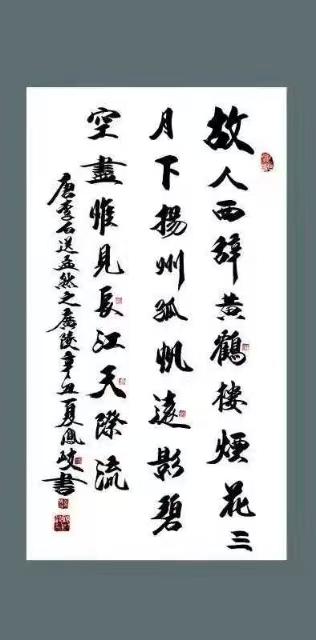 故人西辞黄鶴樓煙花三
月下揚州孤帆遠影碧
空盡惟見長江天際流
唐李白送孟然之廣陵辛丑夏鳳岐書